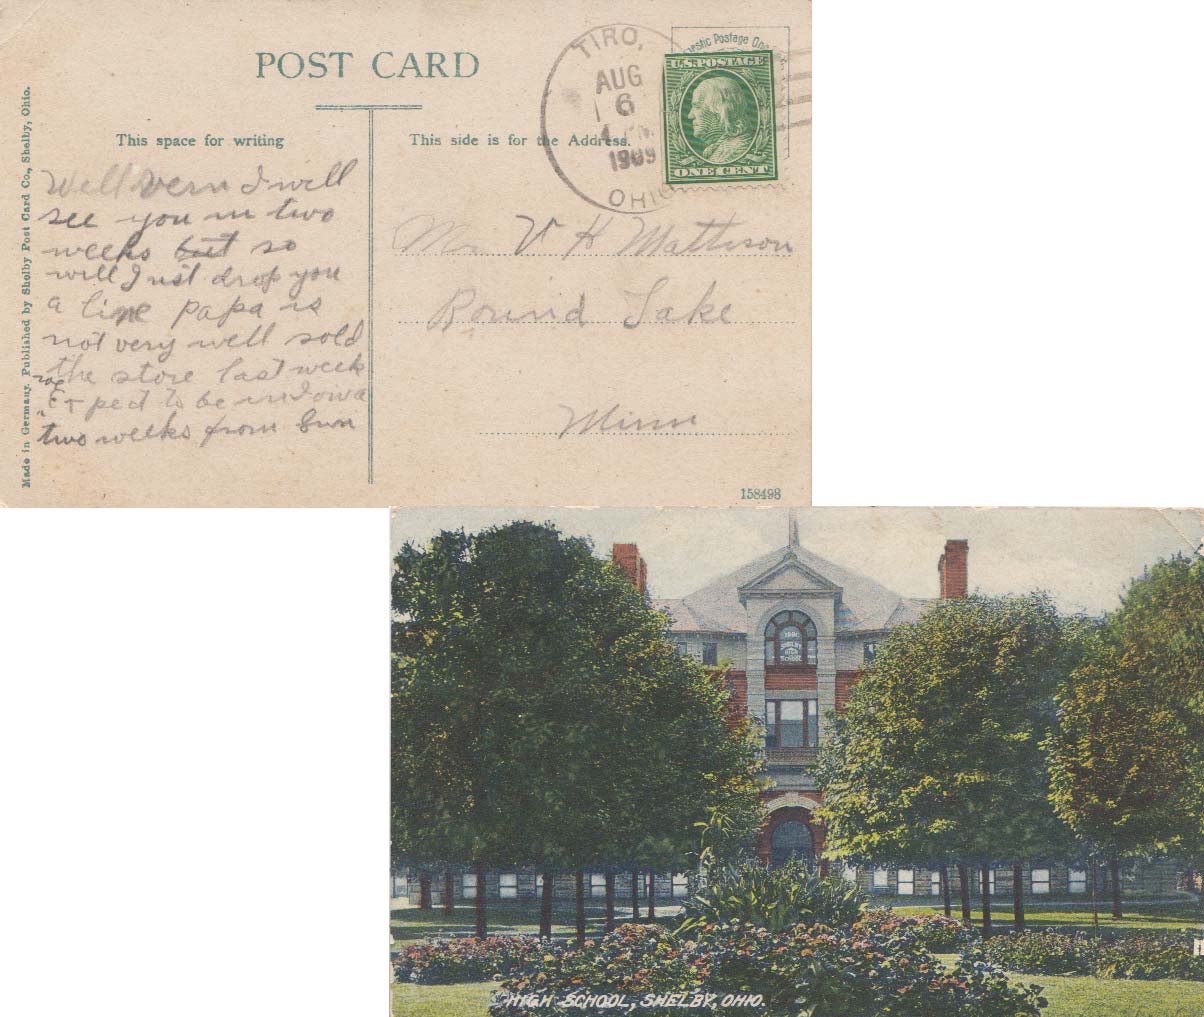 POST CARD
Domestic Postage One
U.S. POSTAGE
ONE CENT
TIRO,
AUG
6
4 PM
1909
OHIO
This space for writing
This side is for the Address.
Made in Germany. Published by Shelby Post Card Co., Shelby, Ohio.
Well Vern I will
see you in two
weeks but so
will Just drop you
a line papa is
not very well sold
the store last week
pect to be in Iowa
two weeks from Sun
Mr V H Mattison
Round Lake
Minn
158498
SHELBY
HIGH
SCHOOL
HIGH SCHOOL, SHELBY, OHIO.